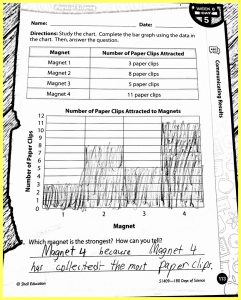 WEEK 9
DAY
5
Name: Date:
Directions: Study the chart. Complete the bar graph using the data
in the chart. Then, answer the question.
Communicating Results
Magnet Number of Paper Clips Attracted
Magnet 1 3 paper clips
Magnet 2 8 paper clips
Magnet 3 5 paper clips
Magnet 4 11 paper clips
Number of Paper Clips Attracted to Magnets
Number of Paper Clips
12
11
10
9
8
7
6
5
4
3
2
1
0
1 2 3 4
Magnet
Which magnet is the strongest? How can you tell?
Magnet 4 because Magnet 4
has collected the most paper clips.
© Shell Education
51409—180 Days of Science